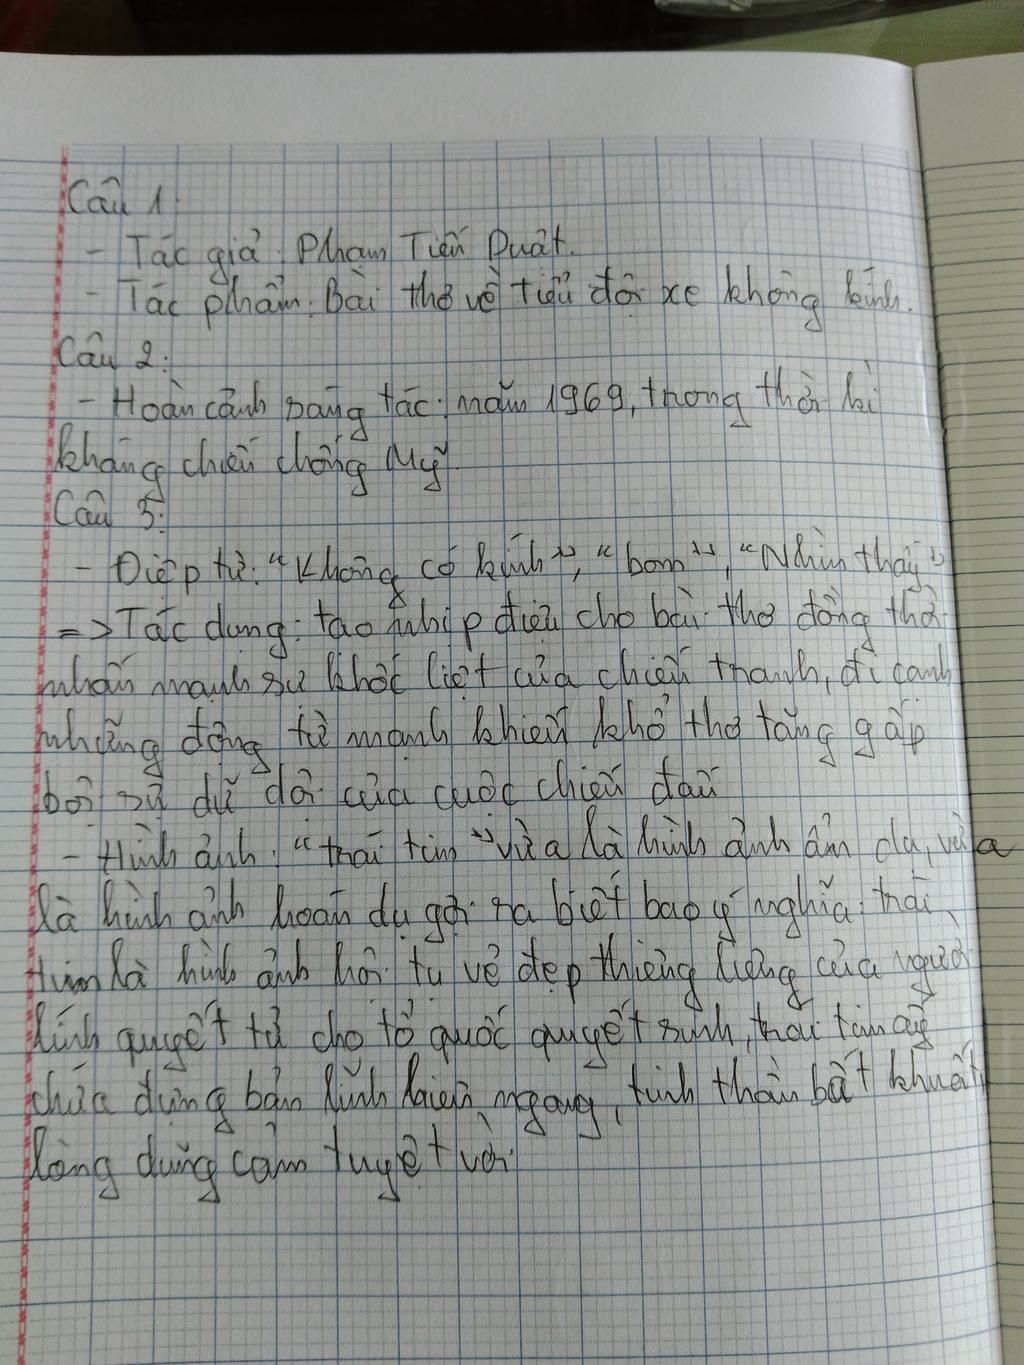 Câu 1:
- Tác giả: Phạm Tiến Duật.
- Tác phẩm: Bài thơ về tiểu đội xe không kính.
Câu 2:
- Hoàn cảnh sáng tác: năm 1969, trong thời kì
kháng chiến chống Mỹ.
Câu 5:
- Điệp từ: "Không có kính", "bom", "Nhìn thấy"
=> Tác dụng: tạo nhịp điệu cho bài thơ đồng thời
nhấn mạnh sự khốc liệt của chiến thanh, đi cạnh
những động từ mạnh khiến khổ thơ tăng gấp
bội sự dữ dội của cuộc chiến đấu
- Hình ảnh: "trái tim" vừa là hình ảnh ẩn dụ, vừa
là hình ảnh hoán dụ gợi ra biết bao ý nghĩa: trái
tim là hình ảnh hội tụ vẻ đẹp thiêng liêng của người
lính quyết tử cho tổ quốc quyết sinh, trái tim ấy
chứa đựng bản lĩnh hiên ngang, tinh thần bất khuất,
lòng dũng cảm tuyệt vời.